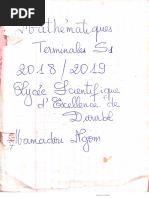 Mathématiques
Terminales S1
2018/2019
Lycée Scientifique
d'Excellence de
Diourbel
Mamadou Ngom